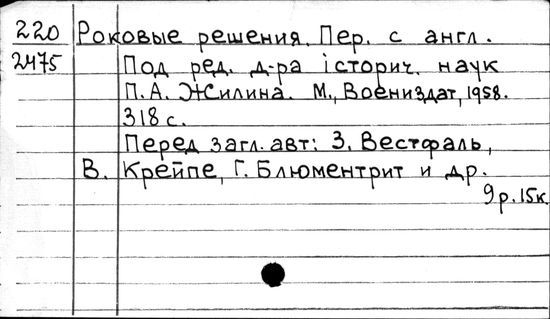 220 Роковые решения. Пер. с англ.
2475 Под ред. д-ра історич. наук
П.А. Жилина. М., Воениздат, 1958.
318 с.
Перед загл. авт: З. Вестфаль,
В. Крейпе, Г. Блюментрит и др.
9р. 15к